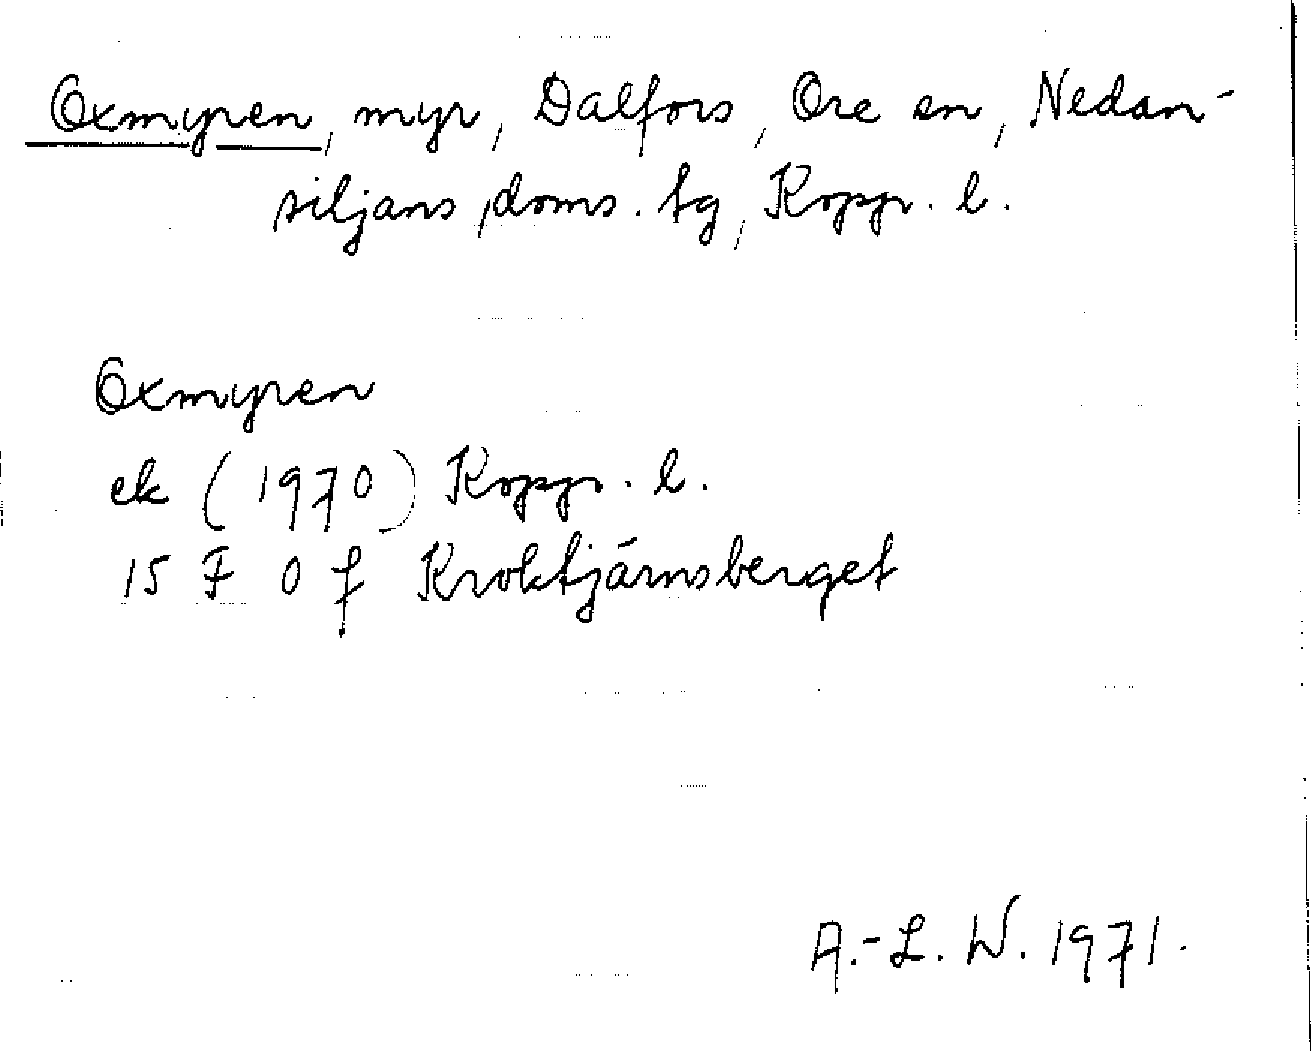 Oxmyren, myr, Dalfors, Ore sn, Nedan-
siljans doms. tg, Kopp. l.
Oxmyren
ek (1970) Kopp. l.
15 F 0 f Kroktjärnsberget
A.-L. W. 1971.